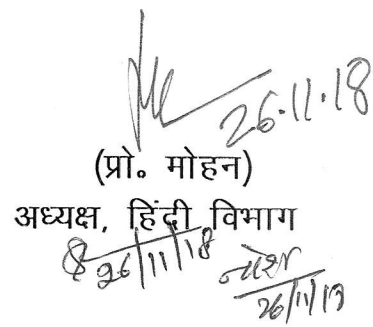 26.11.18
(प्रो॰ मोहन)
अध्यक्ष, हिंदी विभाग
26/11/18
26/11/18